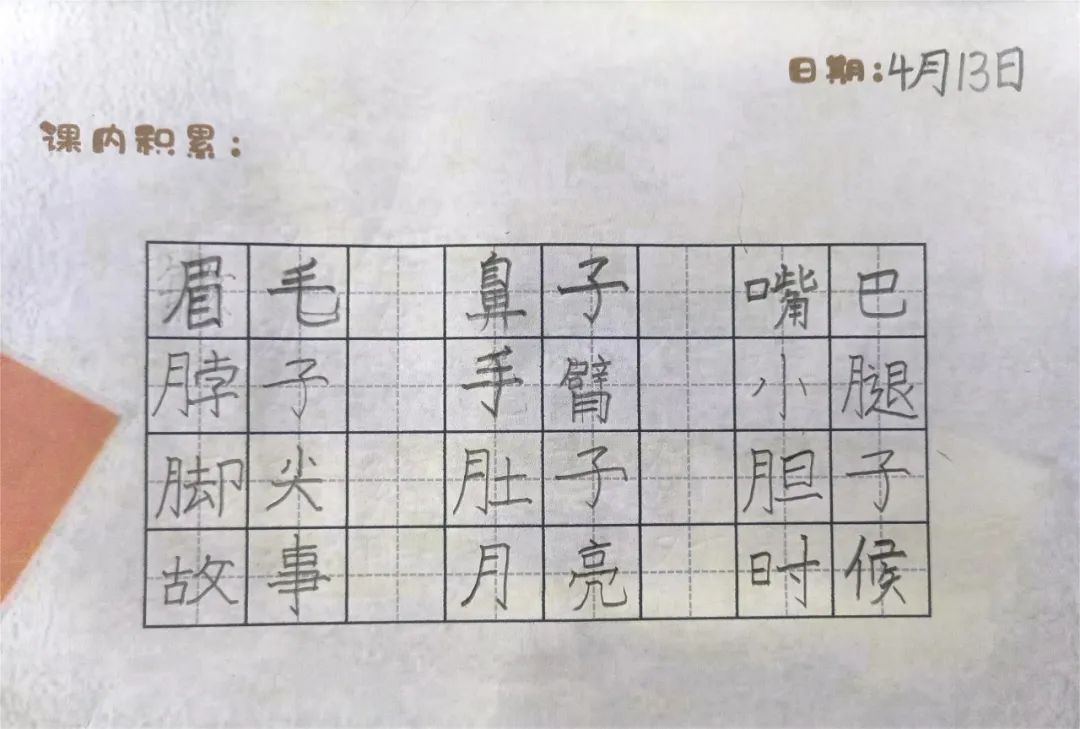 日期:4月13日
课内积累:
眉毛 鼻子 嘴巴
脖子 手臂 小腿
脚尖 肚子 胆子
故事 月亮 时候